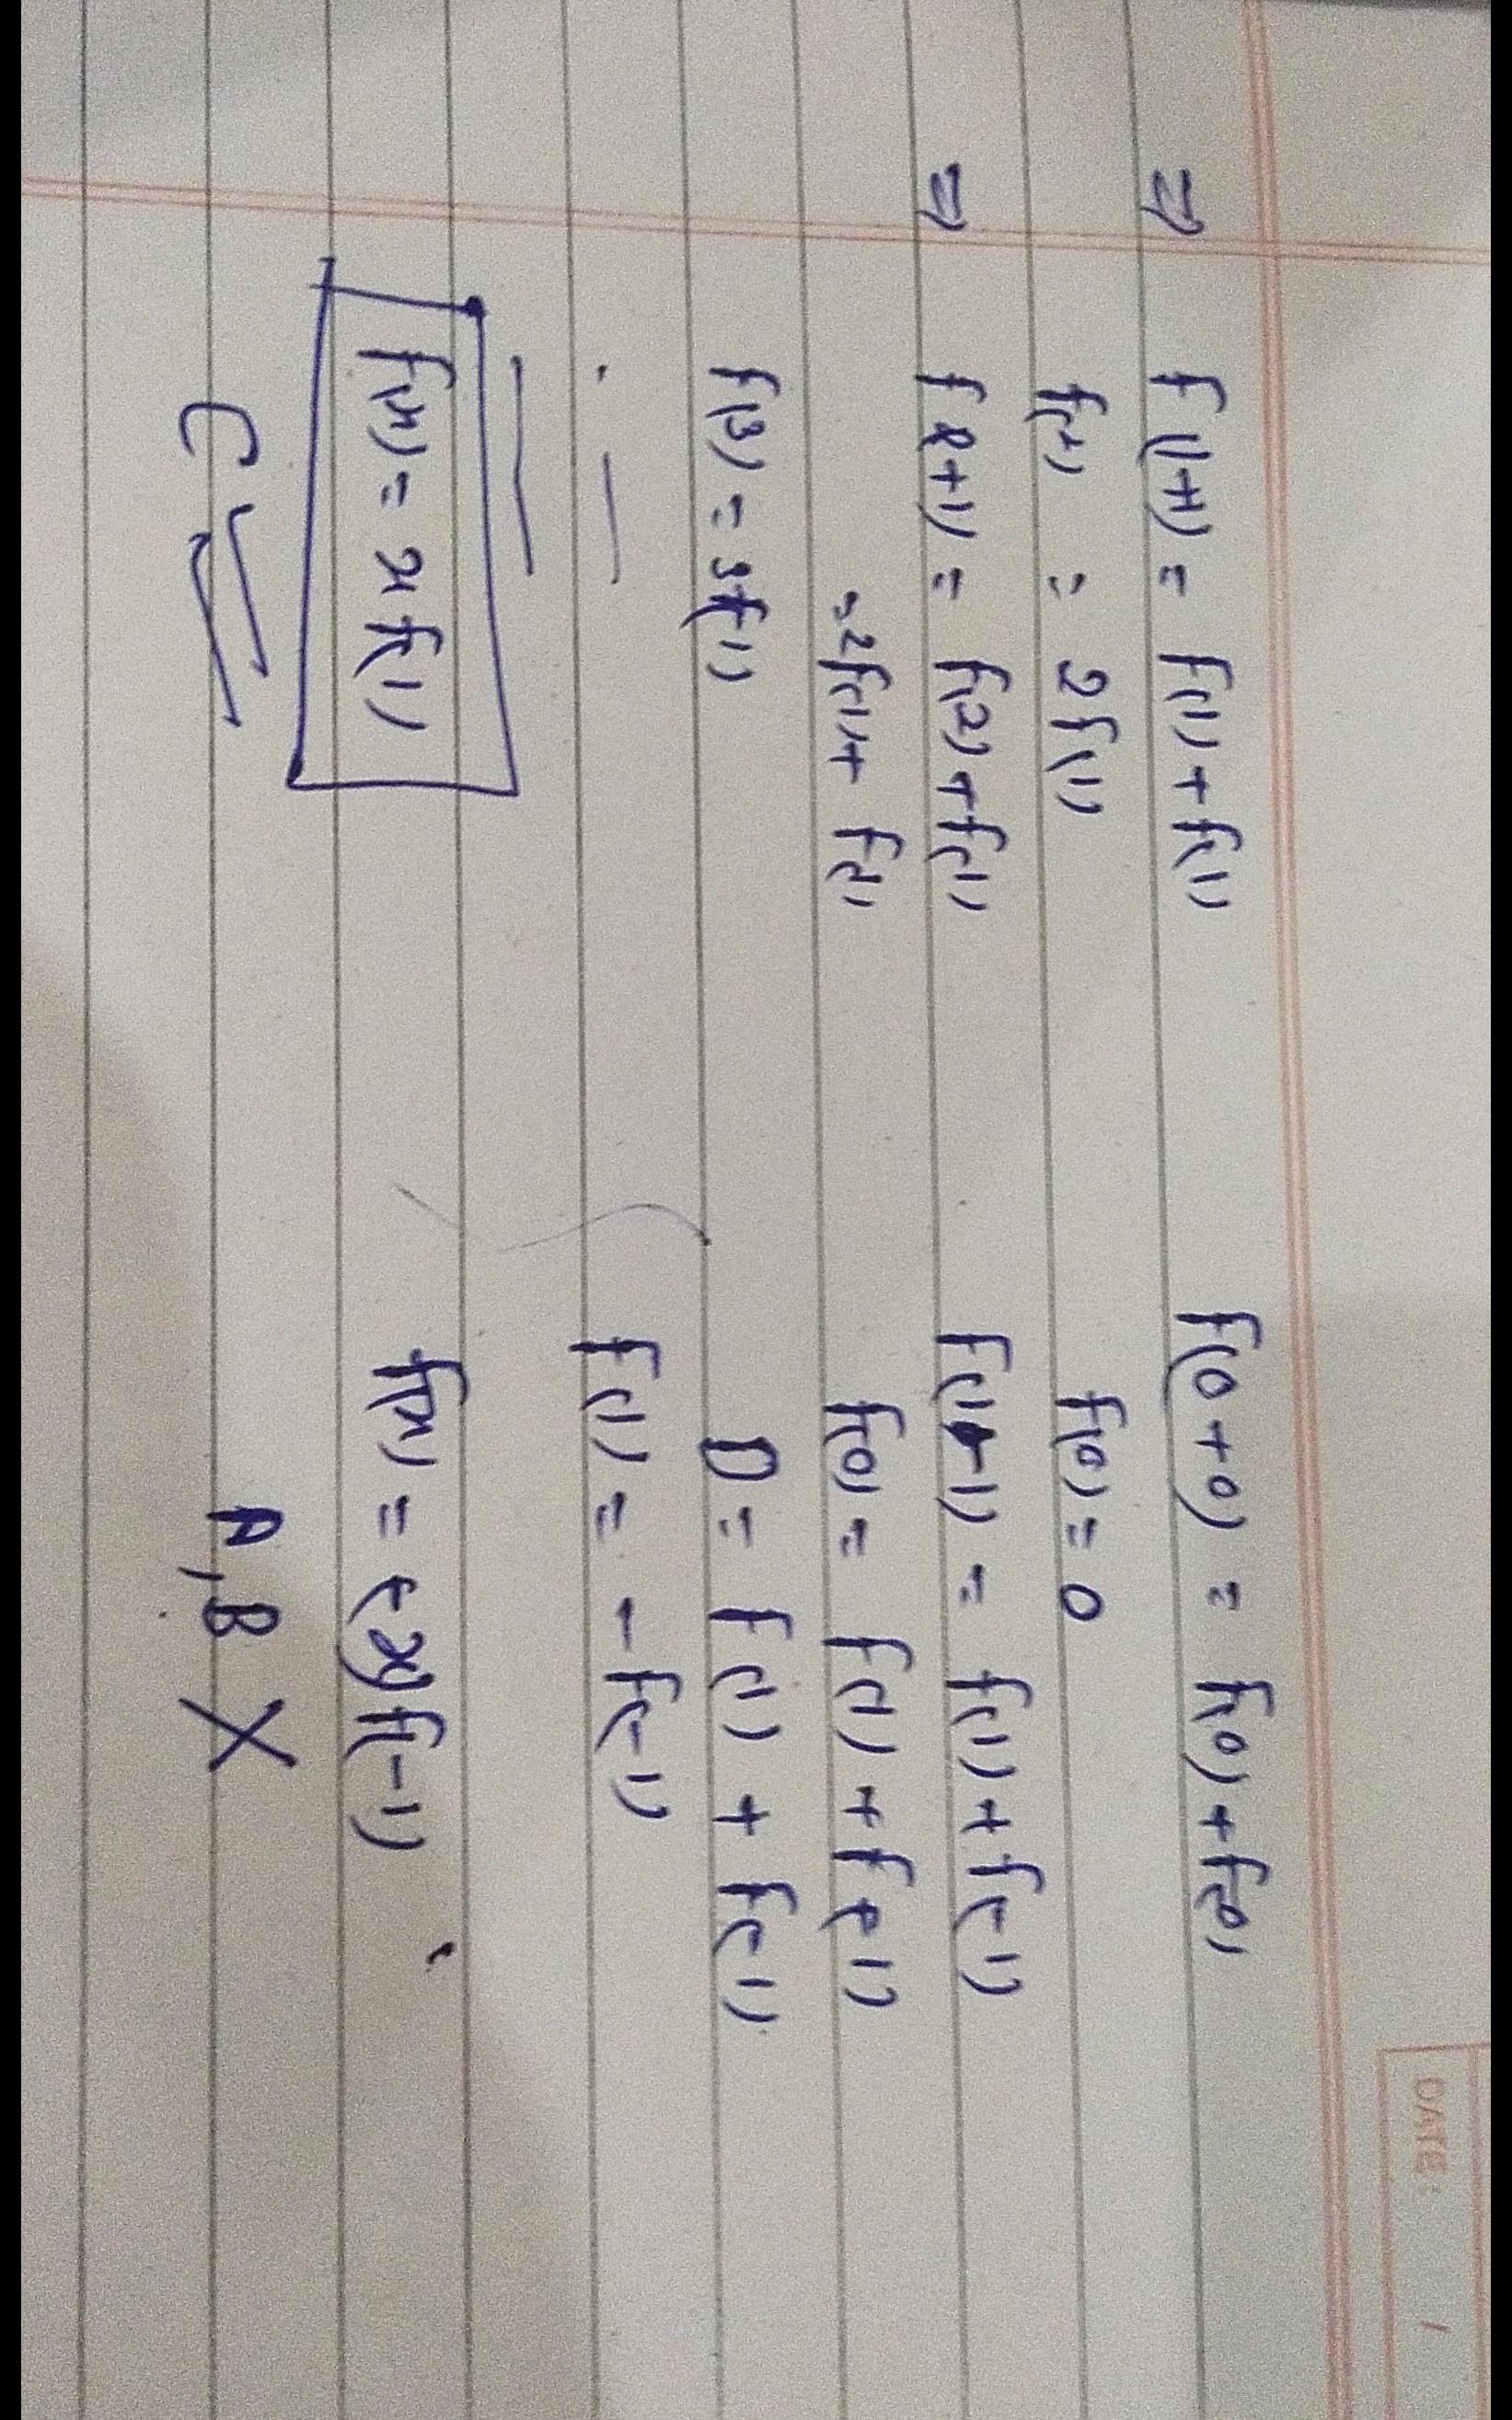 DATE : /
⇒ f(1+1) = f(1) + f(1)
f(2) = 2f(1)
⇒ f(2+1) = f(2) + f(1)
= 2f(1) + f(1)
f(3) = 3f(1)
f(x) = x f(1)
C ✓
f(0+0) = f(0) + f(0)
f(0) = 0
f(1-1) = f(1) + f(-1)
f(0) = f(1) + f(-1)
0 = f(1) + f(-1)
f(1) = -f(-1)
f(x) = (-x)f(-1)
A, B X